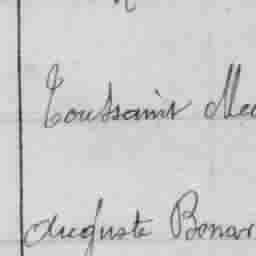 Toussaint Me
Auguste Benar